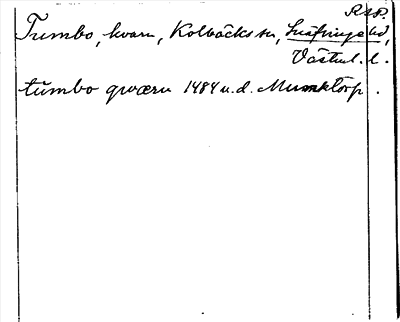 RSP.
Tumbo, kvarn, Kolbäcks sn, Snäfringe hd,
Västml. l.
tümbo qwærn 1484 u.d. Munktorp.